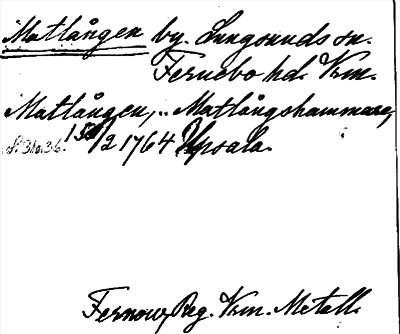 Matlången by. Lungsunds sn.
Fernebo hd. Vrm.
Matlången, „ Matlångshammare,
1 5/2 1764 Upsala.
Fernow, Reg. Vrm. Metall.